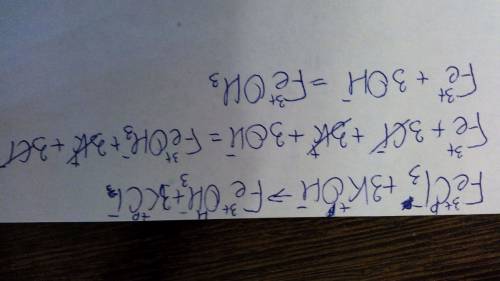 FeCl₃ + 3KOH → FeOH₃ + 3KCl
Fe³⁺ + 3Cl⁻ + 3K⁺ + 3OH⁻ = Fe³⁺OH₃⁻ + 3K⁺ + 3Cl⁻
Fe³⁺ + 3OH⁻ = Fe³⁺OH₃